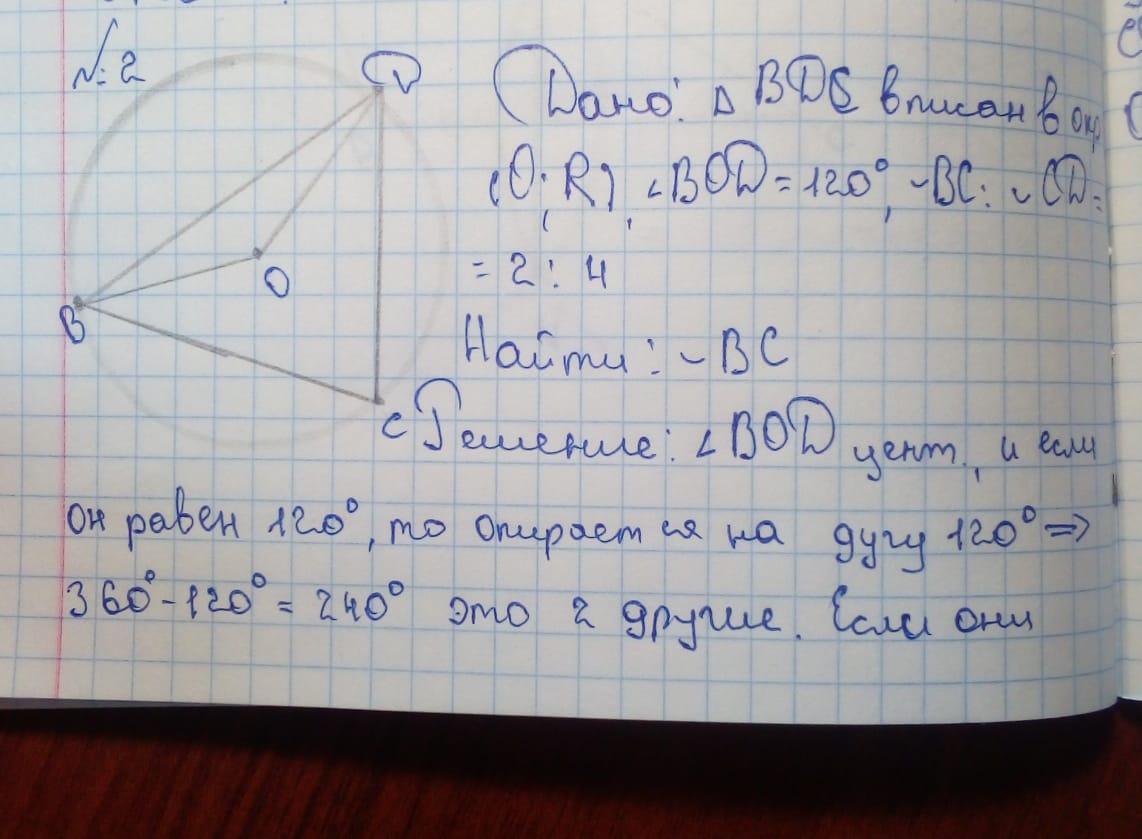 № 2
D
Дано: △ BDC вписан в окр
(O; R), ∠BOD = 120°, ◡BC : ◡CD =
= 2 : 4
O
B
Найти: ◡BC
C
Решение: ∠BOD цент., и если
он равен 120°, то опирается на дугу 120° ⇒
360° - 120° = 240° это 2 другие. Если они